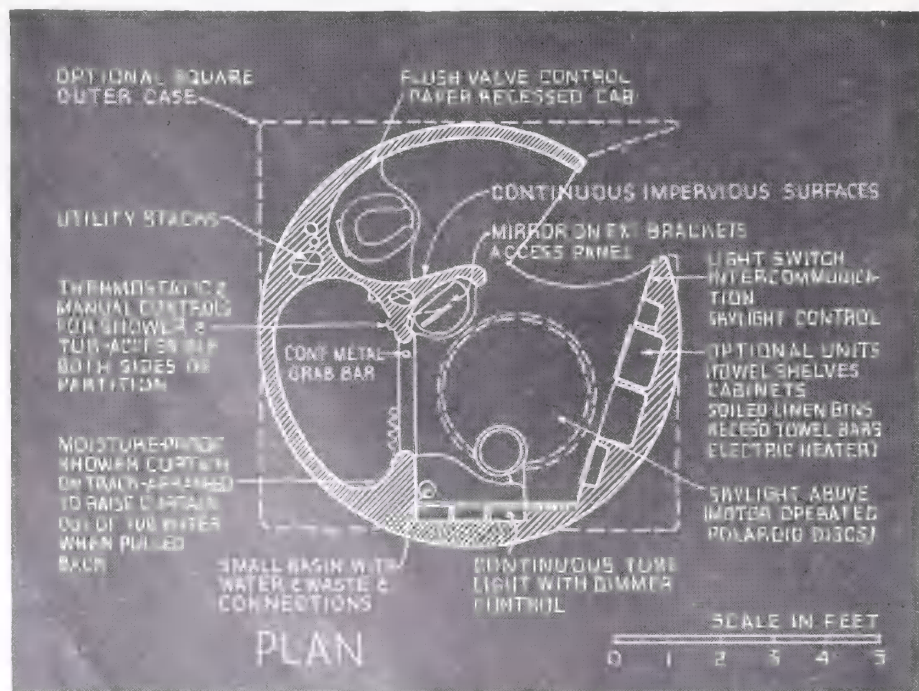 OPTIONAL SQUARE
OUTER CASE
FLUSH VALVE CONTROL
PAPER RECESSED CAB
CONTINUOUS IMPERVIOUS SURFACES
UTILITY STACKS
MIRROR ON EXT BRACKETS
ACCESS PANEL
LIGHT SWITCH
INTERCOMMUNICA-
TION
SKYLIGHT CONTROL
THERMOSTATIC &
MANUAL CONTROLS
FOR SHOWER &
TUB-ACCESSIBLE
BOTH SIDES OF
PARTITION
CONT METAL
GRAB BAR
OPTIONAL UNITS
(TOWEL SHELVES
CABINETS
SOILED LINEN BINS
RECESD TOWEL BARS
ELECTRIC HEATER)
MOISTURE-PROOF
SHOWER CURTAIN
ON TRACK-ARRANGED
TO RAISE CURTAIN
OUT OF TUB WATER
WHEN PULLED
BACK
SKYLIGHT ABOVE
(MOTOR OPERATED
POLAROID DISCS)
SMALL BASIN WITH
WATER & WASTE &
CONNECTIONS
CONTINUOUS TUBE
LIGHT WITH DIMMER
CONTROL
PLAN
SCALE IN FEET
0 1 2 3 4 5